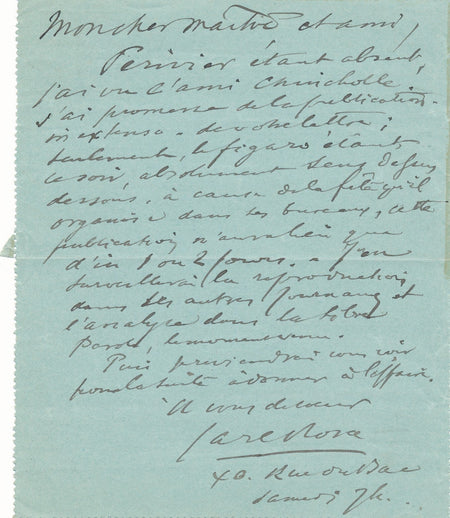 Mon cher maître et ami,
Périvier étant absent,
j'ai vu l'ami Chincholle.
J'ai promesse de la publication -
in extenso - de votre lettre;
seulement, le figaro étant,
ce soir, absolument sens dessus
dessous, à cause de la fête qu'il
organise dans ses bureaux, cette
publication n'aura lieu que
d'ici 1 ou 2 jours. - J'en
surveillerai la reproduction
dans les autres journaux et
l'analyse dans la libre
parole, le moment venu.
Puis je viendrai vous voir
pour la suite à donner à l'affaire.
A vous de cœur
Rue du Bac
Samedi 7h.